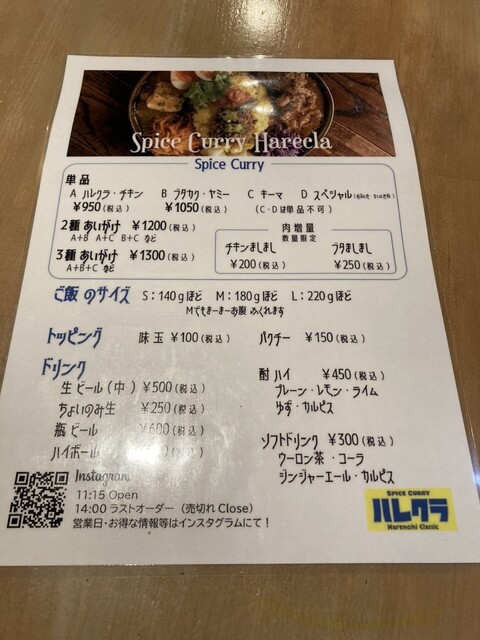 Spice Curry Harecla
Spice Curry
単品
A ハレクラ・チキン B ブタカク・ヤミー C キーマ D スペシャル
¥950(税込) ¥1050(税込) (C・Dは単品不可)
2種 あいがけ ¥1200(税込)
A+B A+C B+C など
3種 あいがけ ¥1300(税込)
A+B+C など
肉増量
数量限定
チキンましまし ブタましまし
¥200(税込) ¥250(税込)
ご飯 のサイズ S:140gほど M:180gほど L:220gほど
Mでもまーまーお腹 ふくれます
トッピング 味玉 ¥100(税込) パクチー ¥150(税込)
ドリンク
生ビール(中) ¥500(税込)
ちょいのみ生 ¥250(税込)
瓶ビール ¥600(税込)
ハイボール (税込)
酎ハイ ¥450(税込)
プレーン・レモン・ライム
ゆず・カルピス
ソフトドリンク ¥300(税込)
ウーロン茶・コーラ
ジンジャーエール・カルピス
Instagram
11:15 Open
14:00 ラストオーダー (売切れ Close)
営業日・お得な情報等はインスタグラムにて!
SPICE CURRY
ハレクラ
Harenohi Classic